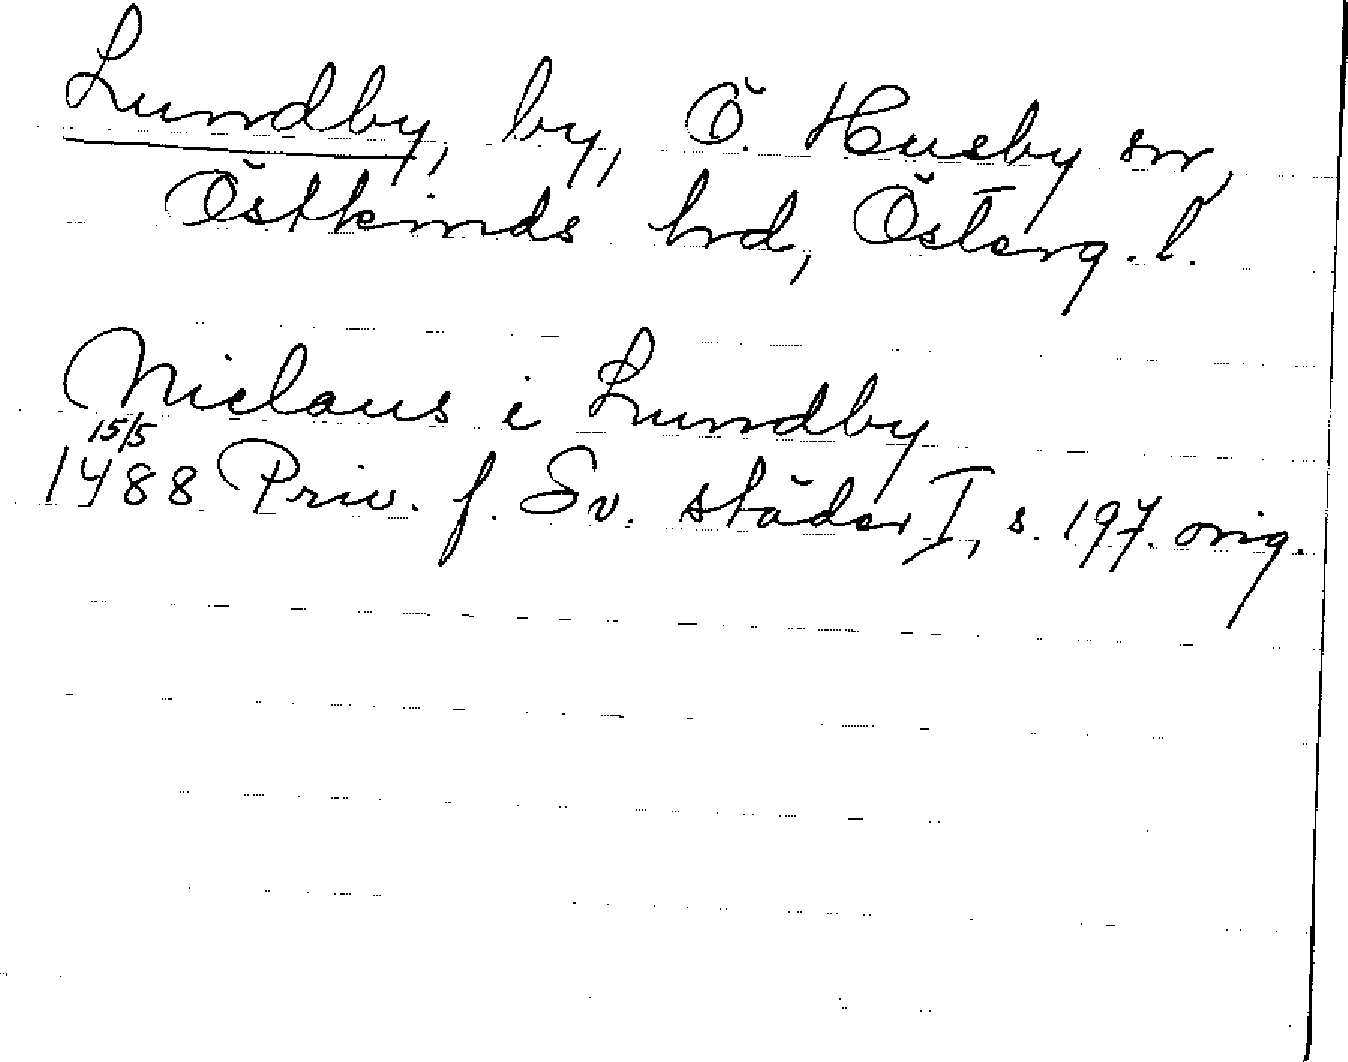 Lundby, by, Ö. Husby sn,
Östkinds hrd, Österg. l.
Niclaus i Lundby
15/5
1488 Priv. f. Sv. städer I, s. 197. orig.